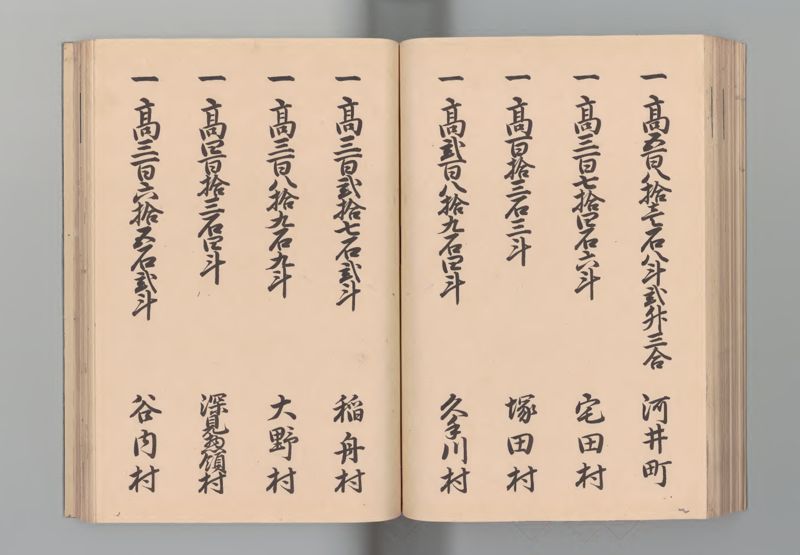 一 高五百八拾壱石八斗弐升三合 河井町
一 高三百七拾四石六斗 宅田村
一 高百拾三石三斗 塚田村
一 高弐百八拾九石四斗 久手川村
一 高三百弐拾七石弐斗 稲舟村
一 高三百八拾九石九斗 大野村
一 高四百拾三石四斗 深見村領村
一 高三百六拾五石弐斗 谷内村